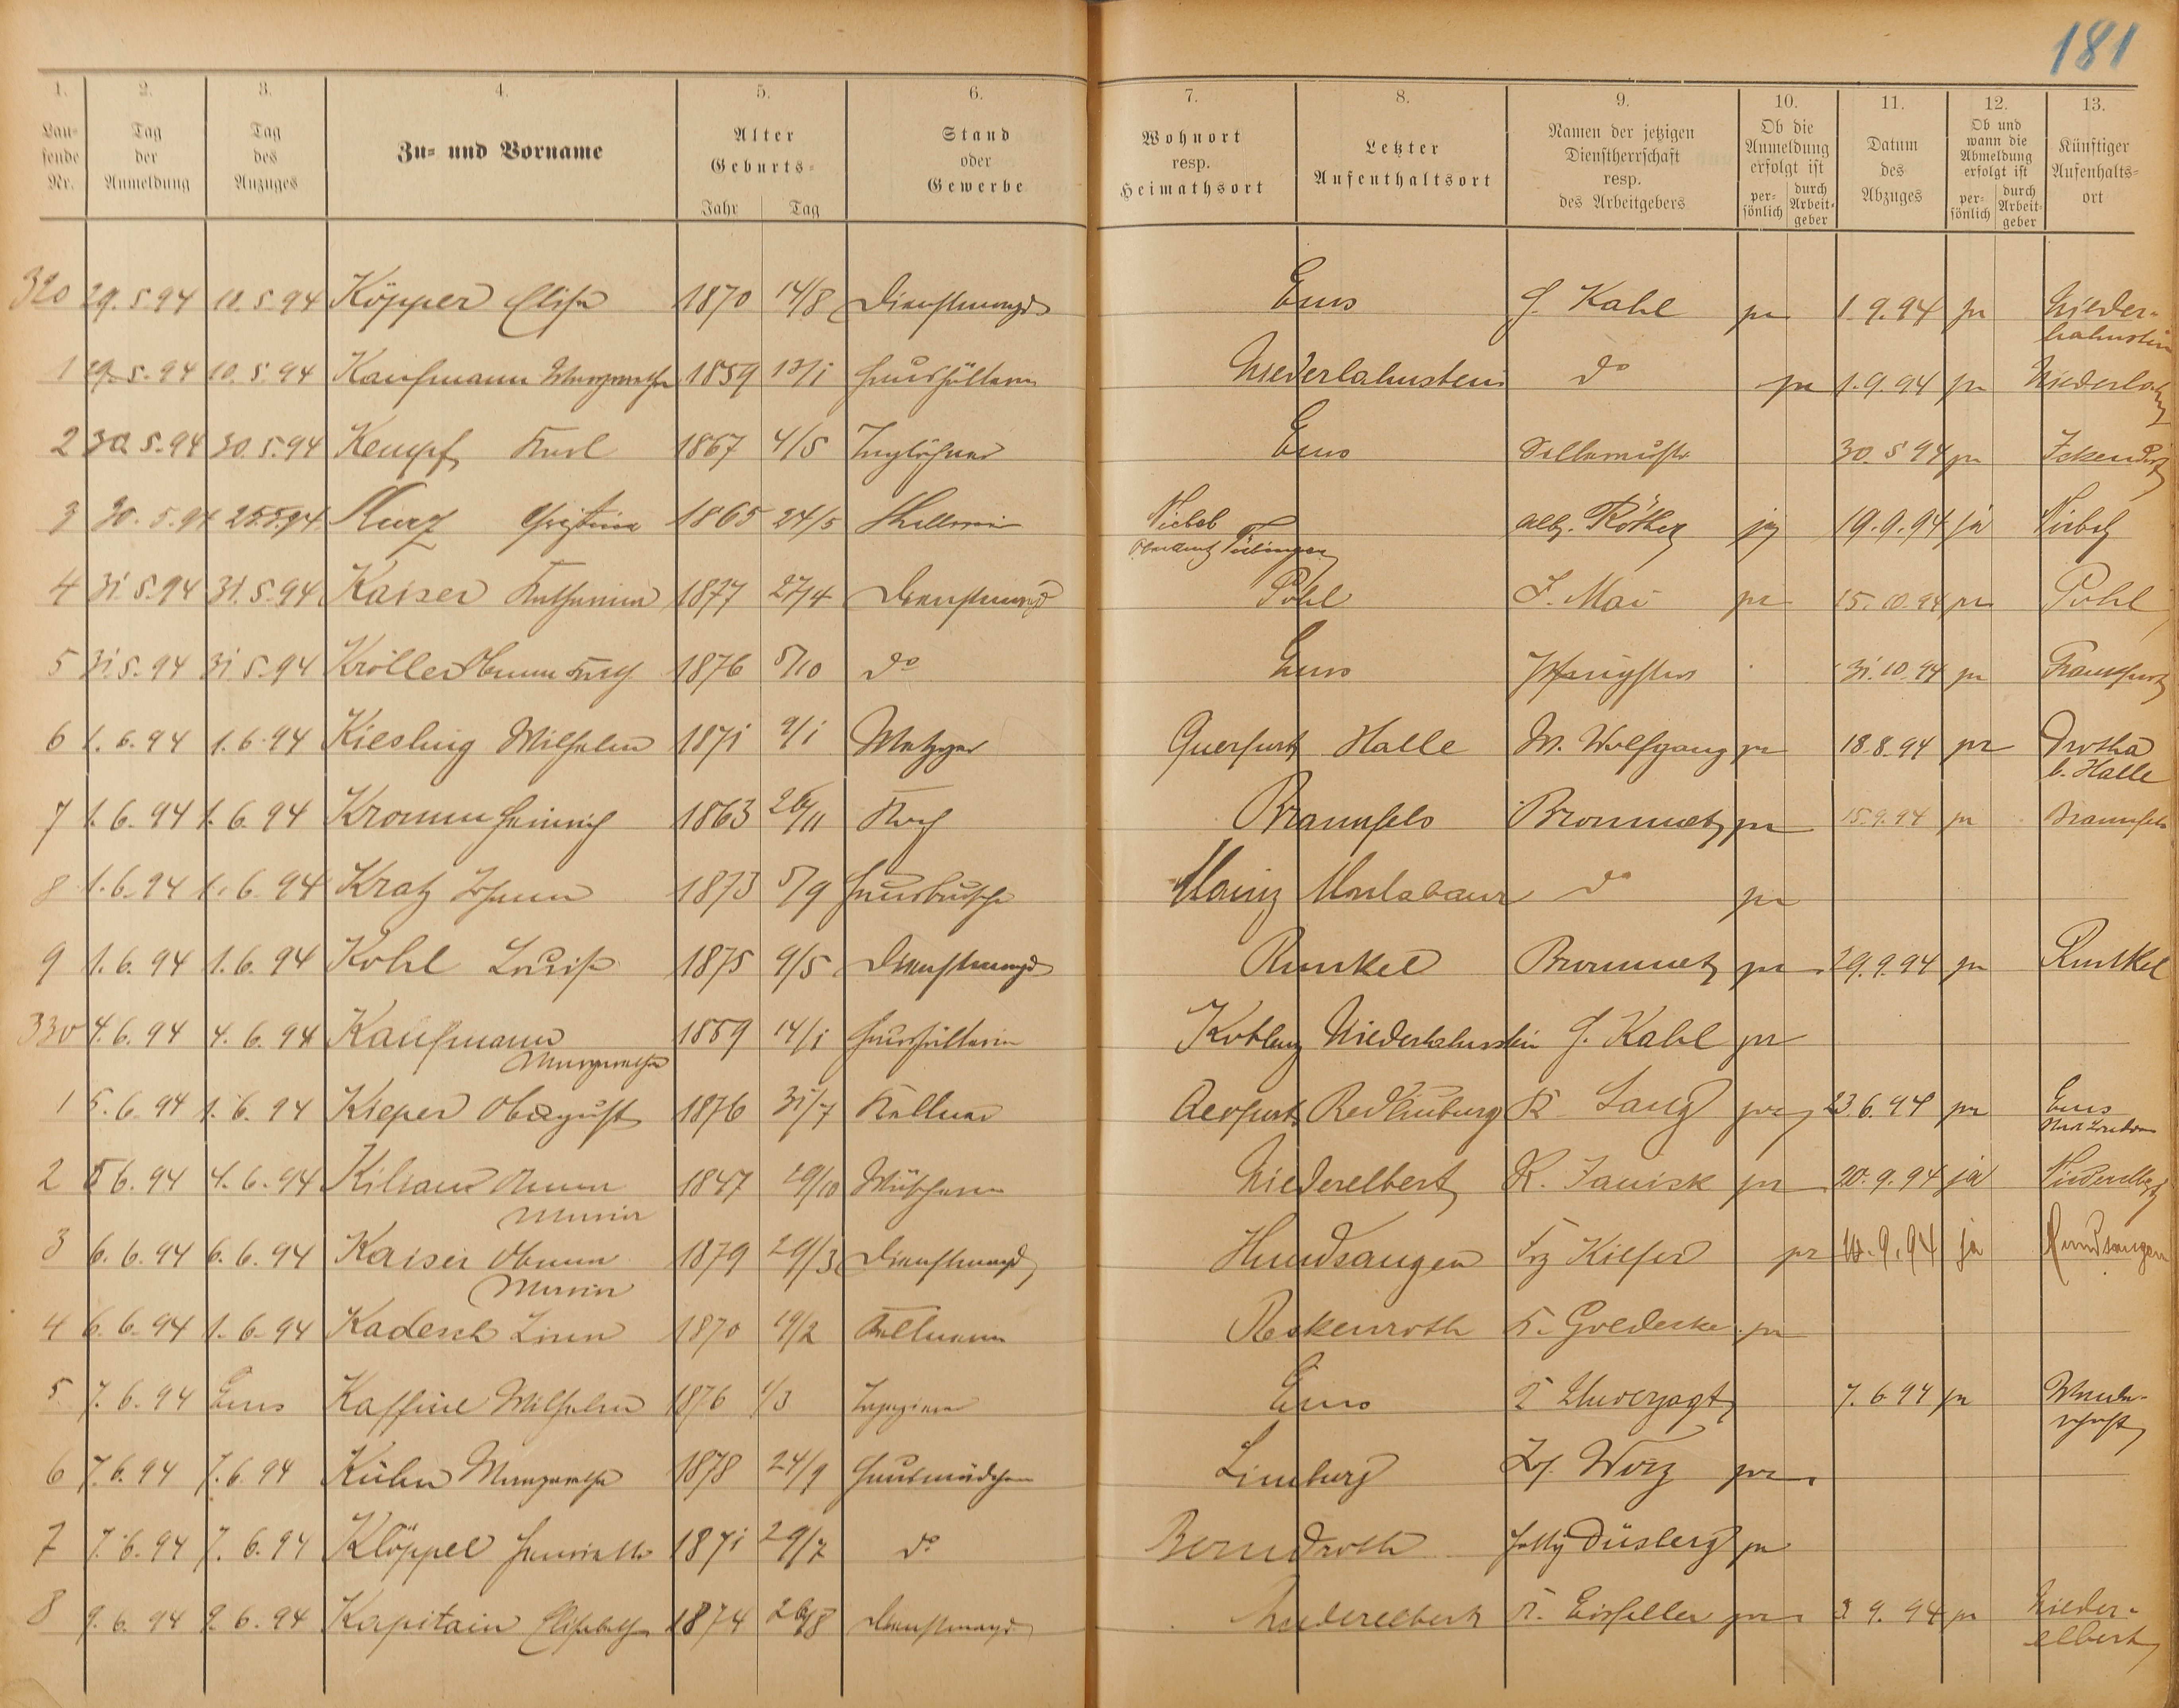 181
1. 2. 3. 4. 5. 6. 7. 8. 9. 10. 11. 12. 13.
Laufende Nr. Tag der Anmeldung Tag des Anzuges Zu- und Vorname Alter Geburts- Jahr Tag Stand oder Gewerbe Wohnort resp. Heimathsort Letzter Aufenthaltsort Namen der jetzigen Dienstherrschaft resp. des Arbeitgebers Ob die Anmeldung erfolgt ist persönlich durch Arbeitgeber Datum des Abzuges Ob und wann die Abmeldung erfolgt ist persönlich durch Arbeitgeber Künftiger Aufenhaltsort
320 29.5.94 10.5.94 Köpper Elise 1870 14/8 Dienstmagd Ems G. Kahl pr 1.9.94 pr Nieder-
lahnstein
1 29.5.94 10.5.94 Kaufmann Margaretha 1859 13/1 Haushälterin Niederlahnstein do pr 1.9.94 pr
2 30.5.94 30.5.94 Kempf Karl 1867 4/5 Taglöhner Ems 30.5.94 pr
3 30.5.94 25.5.94 Kurz Christine 1865 24/5 Kellnerin Niebel Alb. Röther ja 19.9.94 ja Niebel
Oberamt Tübingen
4 31.5.94 31.5.94 Kaiser Katharina 1877 27/4 Dienstmagd Pohl J. Mai pr 15.10.94 pr Pohl
5 31.5.94 31.5.94 Kröller Anna 1876 5/10 do Ems 31.10.94 pr Frankfurt
6 1.6.94 1.6.94 Kiesling Wilhelm 1871 9/1 Metzger Querfurt Halle W. Wolfgang pr 18.8.94 pr Trotha
b. Halle
7 1.6.94 1.6.94 Kromm Heinrich 1863 26/11 Koch Braunfels Bronmetz pr 15.9.94 pr Braunfels
8 1.6.94 1.6.94 Kratz Johann 1873 5/9 Hausbursche Mainz Montabaur do pr
9 1.6.94 1.6.94 Kohl Louise 1875 9/5 Dienstmagd Runkel Bronmetz pr 29.9.94 pr Runkel
330 4.6.94 4.6.94 Kaufmann 1859 14/1 Haushälterin Koblenz Niederlahnstein G. Kahl pr
Margaretha
1 5.6.94 1.6.94 Kieper August 1876 31/7 Kellner K Lang pr 23.6.94 pr Ems
Nach London
2 5.6.94 4.6.94 Kilian Anna 1847 29/10 Wäscherin Niederelbert K. Janisk pr 20.9.94 ja Niederelbert
Maria
3 6.6.94 6.6.94 Kaiser Anna 1879 29/3 Dienstmagd Hundsangen Frz Kiefer pr 10.9.94 ja Hundsangen
Maria
4 6.6.94 1.6.94 Kadesch Lina 1870 19/2 Kellnerin Reckenroth K. Goedecke pr
5 7.6.94 Ems Kaffine Wilhelm 1876 1/3 Tapezierer Ems Unverzagt 7.6.94 pr Wander-
schaft
6 7.6.94 7.6.94 Kühn Margaretha 1878 24/9 Hausmädchen Limburg Wirz pr
7 7.6.94 7.6.94 Klöppel Henriette 1871 29/7 do Berndroth Düsberg pr
8 9.6.94 9.6.94 Kapitain Elisabeth 1874 26/8 Dienstmagd Niederelbert K. Eisfeller pr 3.9.94 pr Nieder-
elbert